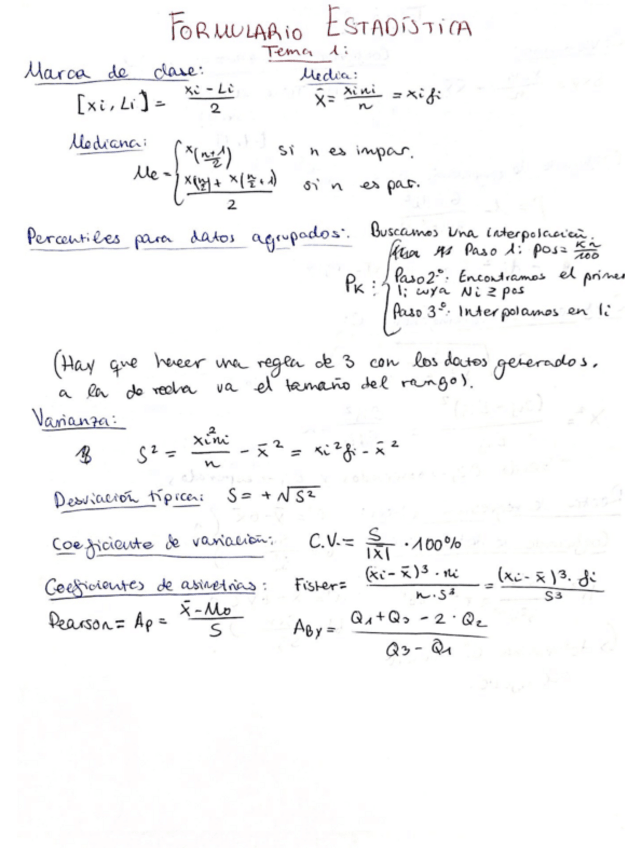 FORMULARIO ESTADÍSTICA
Tema 1:
Marca de clase: Media:
[xi, Li] = xi - Li / 2 x̄ = xi ni / n = xi fi
Mediana:
Me = { x((n+1)/2) si n es impar.
x(n/2) + x(n/2 + 1) / 2 si n es par.
Percentiles para datos agrupados: Buscamos una interpolación.
Paso 1: pos = Kn/100
PK : { Paso 2º: Encontramos el primer
li cuya Ni ≥ pos
Paso 3º: Interpolamos en li
(Hay que hacer una regla de 3 con los datos generados,
a la derecha va el tamaño del rango).
Varianza:
S² = xi² ni / n - x̄² = xi² fi - x̄²
Desviación típica: S = +√S²
Coeficiente de variación: C.V. = S / |x̄| · 100%
Coeficientes de asimetrías: Fisher = (xi - x̄)³ · ni / n · S³ = (xi - x̄)³ · fi / S³
Pearson = Ap = x̄ - Mo / S ABy = Q1 + Q3 - 2 · Q2 / Q3 - Q1